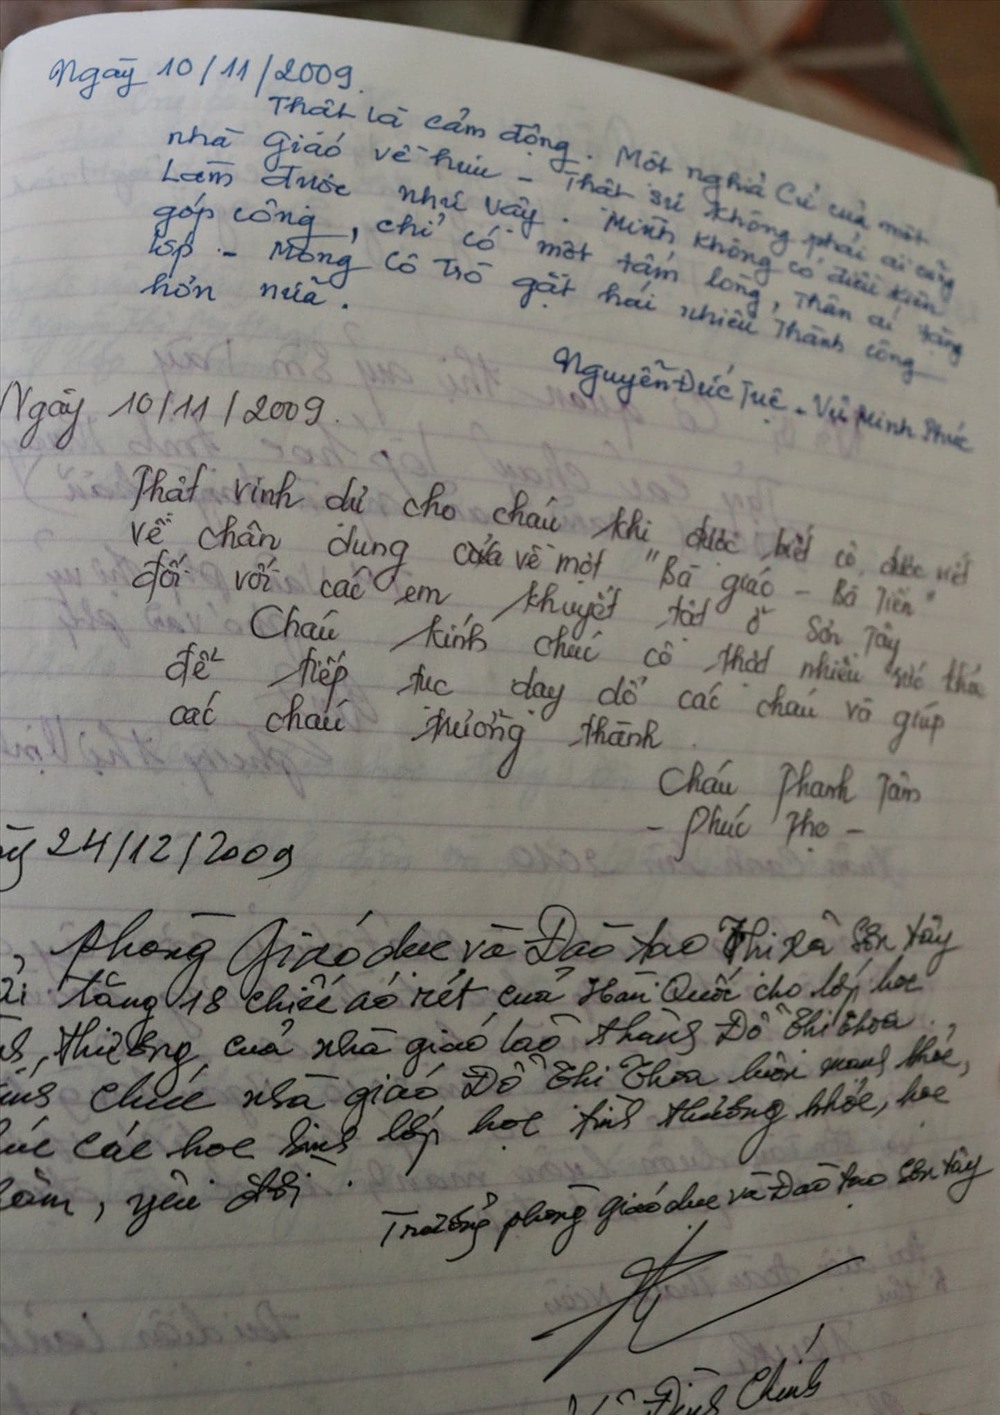 Ngày 10/11/2009.
Thật là cảm động. Một nghĩa cử của một
nhà giáo về hưu - Thật sự không phải ai cũng
Làm được như vậy. Mình không có điều kiện
góp công, chỉ có một tấm lòng, thân ái tặng
lớp - Mong cô trò gặt hái nhiều thành công
hơn nữa.
Nguyễn Đức Tuệ - Vũ Minh Phúc
Ngày 10/11/2009.
Thật vinh dự cho cháu khi được biết cô, được viết
về chân dung của về một "Bà giáo - Bà Tiên"
đối với các em khuyết tật ở Sơn Tây
Cháu kính chúc cô thật nhiều sức khỏe
để tiếp tục dạy dỗ các cháu và giúp
các cháu trưởng thành.
Cháu Thanh Tâm
- Phúc Thọ -
24/12/2009
Phòng Giáo dục và Đào tạo Thị xã Sơn Tây
tặng 18 chiếc áo rét của Hàn Quốc cho lớp học
thương của nhà giáo lão thành Đỗ Thị Thoa.
chúc nhà giáo Đỗ Thị Thoa luôn mạnh khỏe,
các học sinh lớp học tình thương khỏe, học
, yêu đời.
Trưởng phòng Giáo dục và Đào tạo Sơn Tây
Đình Chính